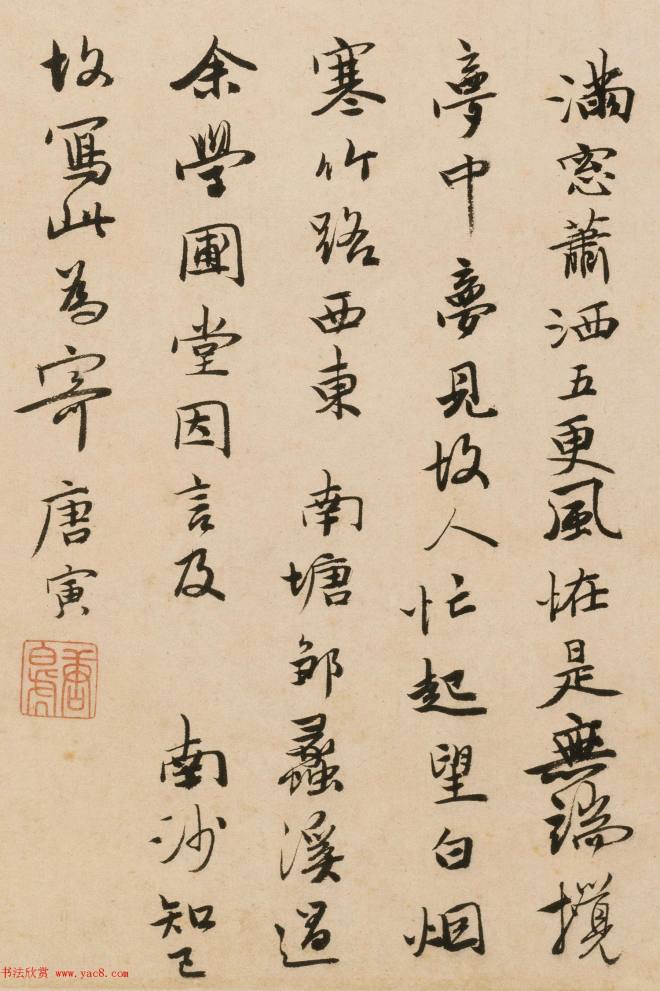 滿窓蕭洒五更風恠是無端攪
夢中夢見故人忙起望白烟
寒竹路西東 南塘邹蠡溪過
余學圃堂因言及 南沙知己
故寫此為寄 唐寅
唐寅
书法欣赏 www.yac8.com